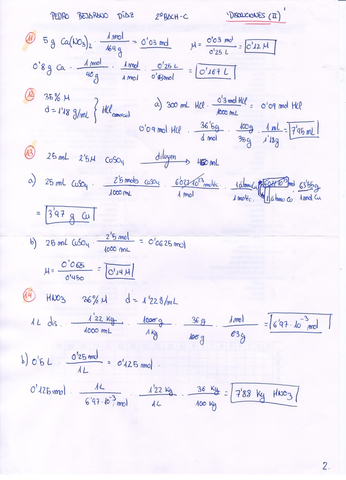 PEDRO BEJARANO DÍAZ 2º BACH-C "DISOLUCIONES (II)"
11 5 g Ca(NO3)2 · 1 mol / 164 g = 0'03 mol M = 0'03 mol / 0'25 L = 0'12 M
0'8 g Ca · 1 mol / 40 g · 1 mol / 1 mol · 0'25 L / 0'03 mol = 0'167 L
12 35% M
d = 1'18 g/mL } HCl comercial a) 300 mL HCl · 0'3 mol HCl / 1000 mL = 0'09 mol HCl
0'09 mol HCl · 36'5 g / 1 mol · 100 g / 35 g · 1 mL / 1'18 g = 7'95 mL
13 25 mL 2'5 M CuSO4 diluyen → 450 mL
a) 25 mL CuSO4 · 2'5 mols CuSO4 / 1000 mL 1 mol 63'55 g / 1 mol Cu
= 3'97 g Cu
b) 25 mL CuSO4 · 2'5 mol / 1000 mL = 0'0625 mol
M = 0'065 / 0'450 = 0'14 M
14 HNO3 36% M d = 1'22 g/mL
1 L dis. · 1'22 Kg / 1000 mL · 1000 g / 1 Kg · 36 g / 100 g · 1 mol / 63 g = 6'97·10⁻³ mol
b) 0'5 L · 0'25 mol / 1 L = 0'125 mol
0'125 mol · 1 L / 6'97·10⁻³ mol · 1'22 Kg / 1 L · 36 Kg / 100 Kg = 7'88 Kg HNO3
2.